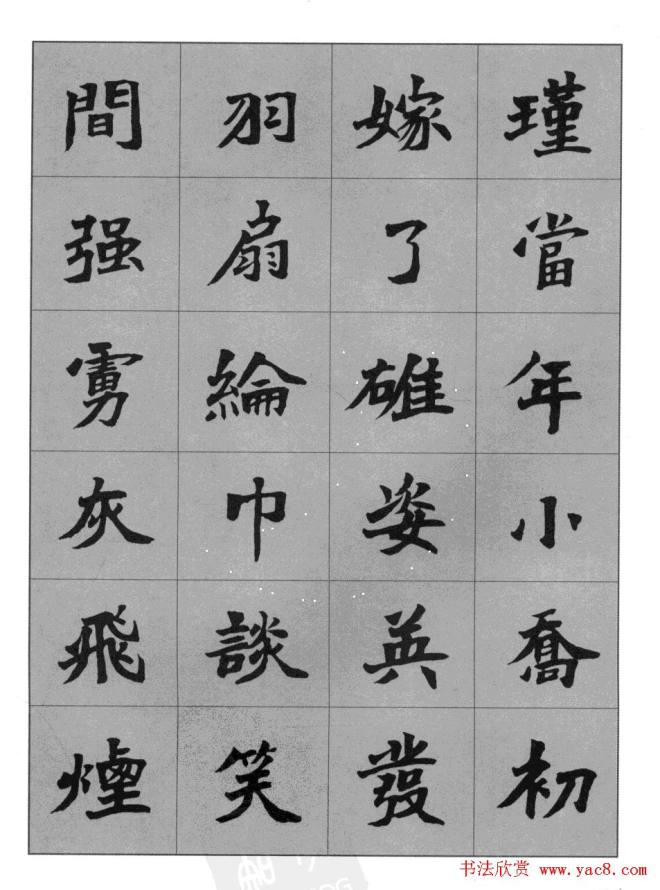 瑾當年小喬初
嫁了雄姿英發
羽扇綸巾談笑
間强虜灰飛煙
书法欣赏 www.yac8.com